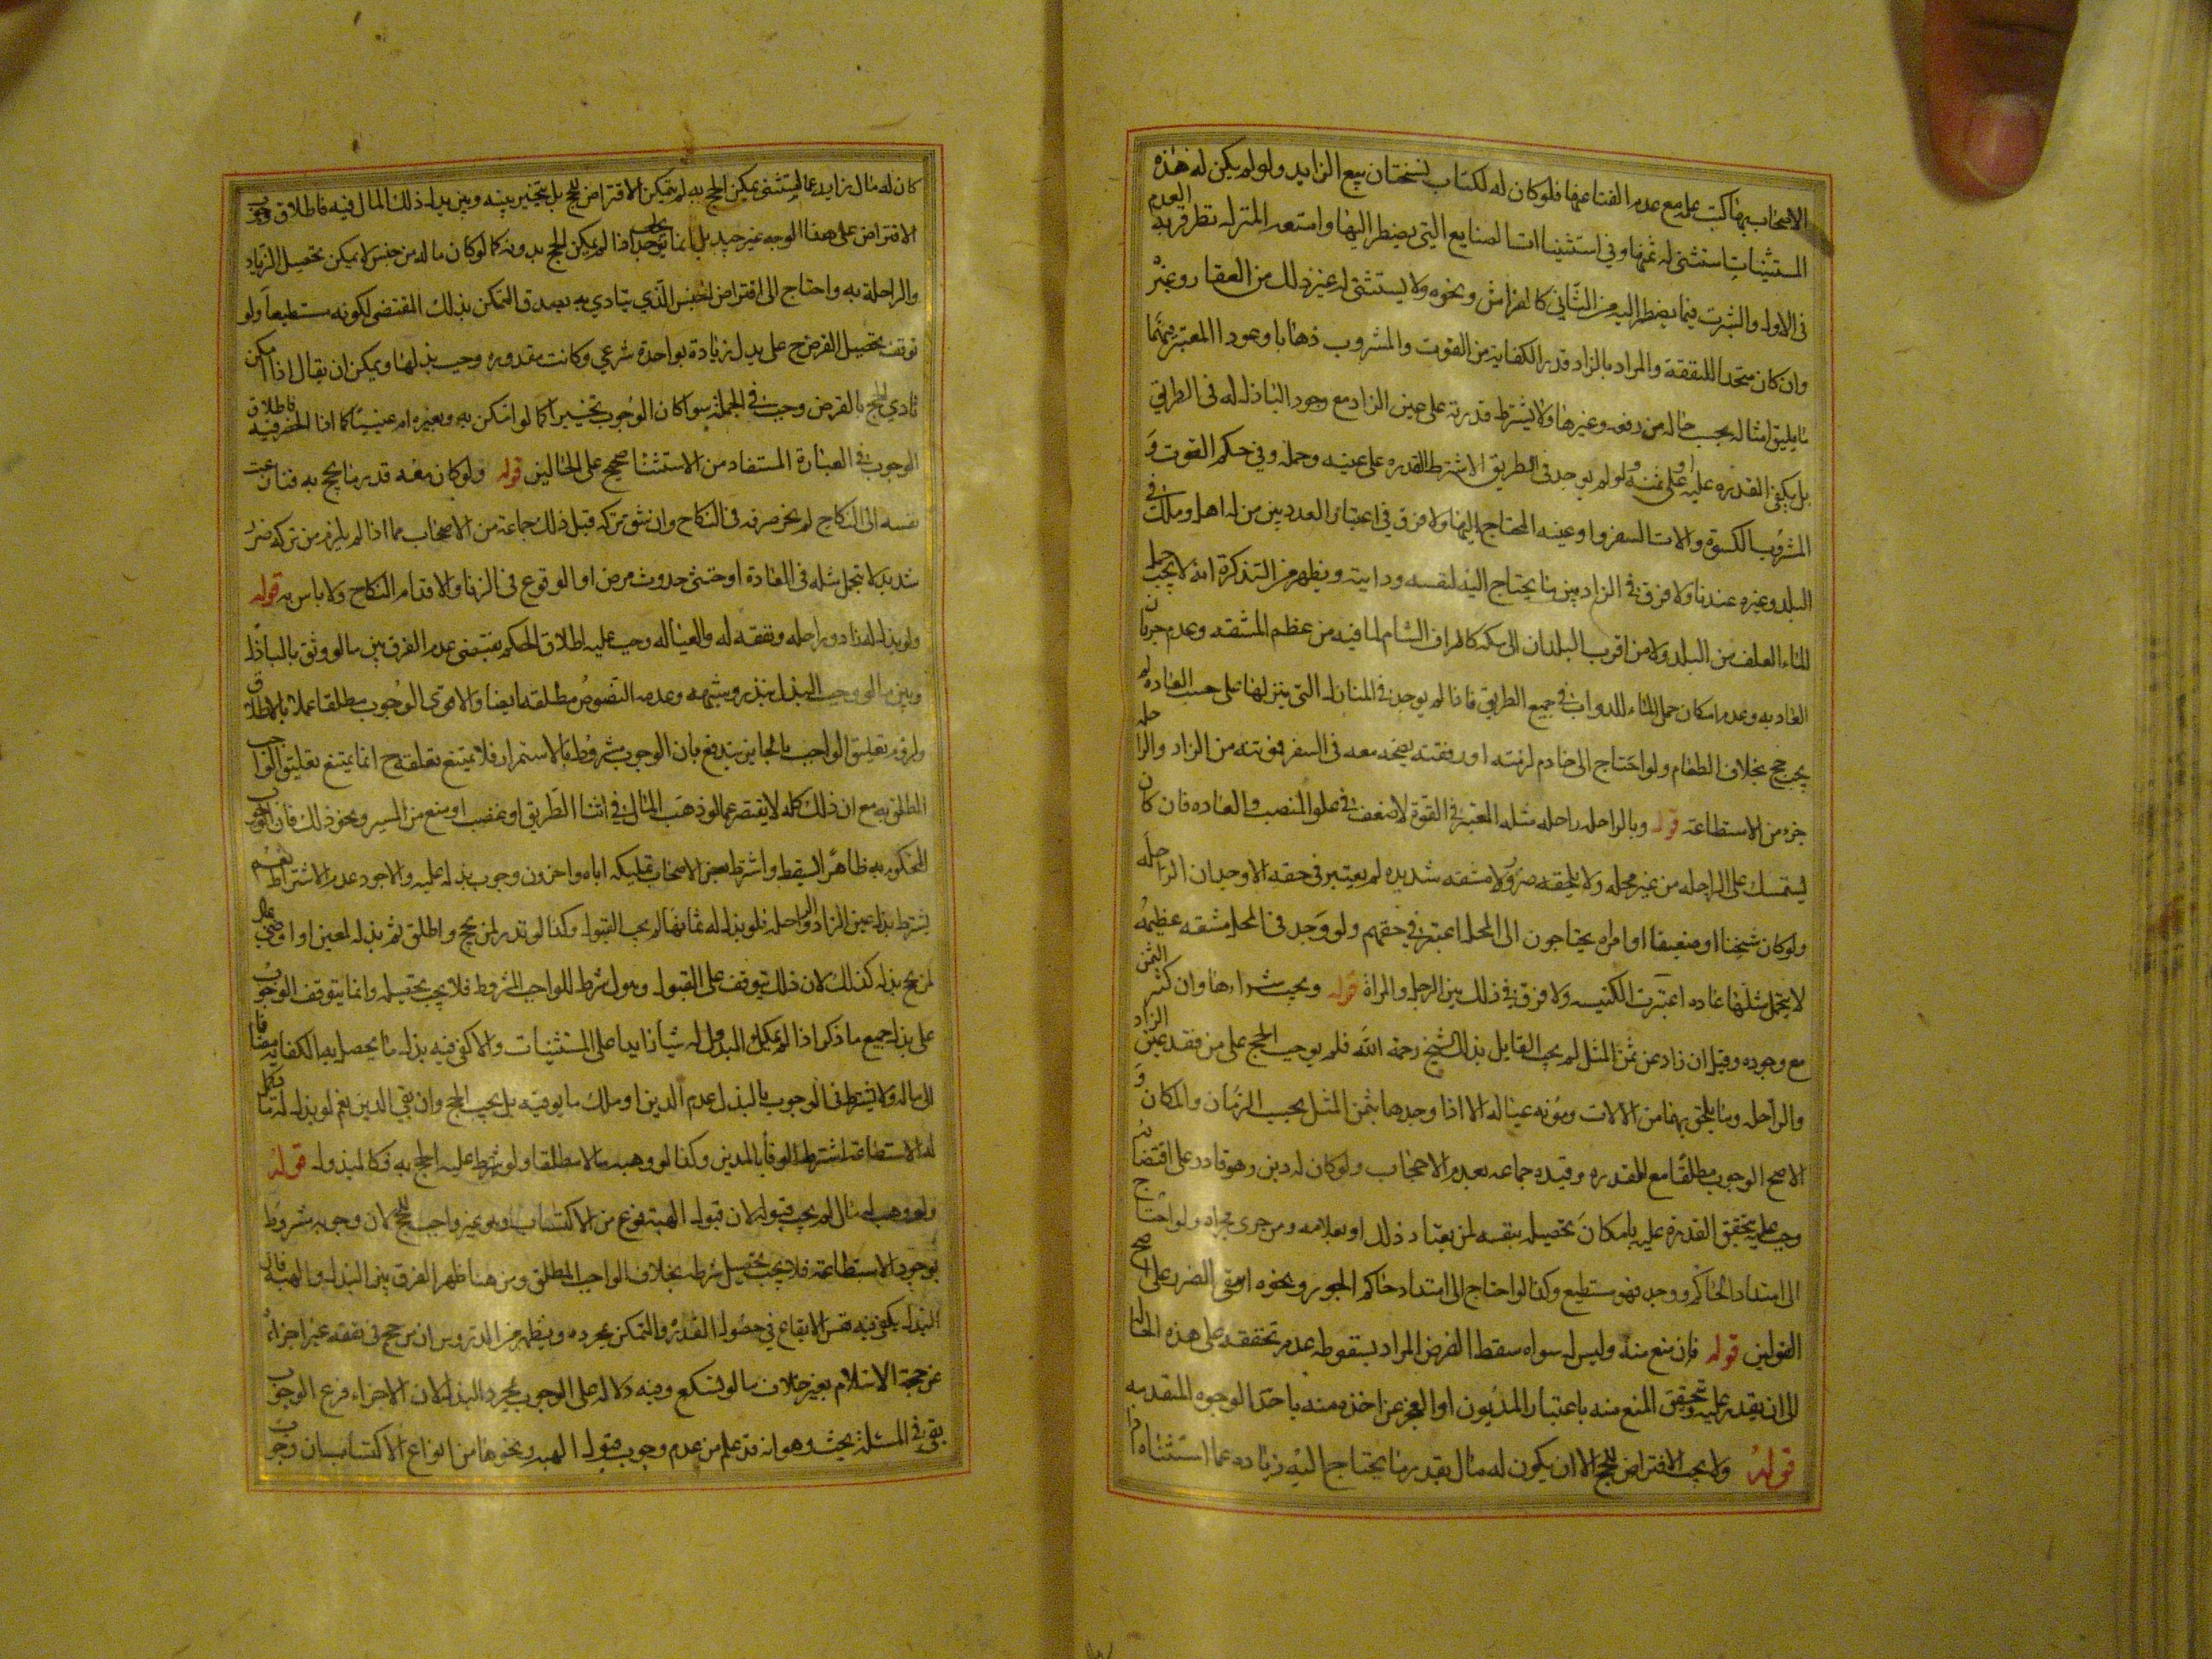 الاصحاب بهما كتب علم مع عدم الغنا عنها فلو كان له لكتاب نسختان بيع الزايد ولو لم يكن له هذه
المستثنيات استثنى له ثمنها وفي استثنيا الات الصنايع التي يضطر اليها وامتعه المنزل نظر فربه العدم
في الاول والثبوت فيما يضطر اليه من الثاني كالفراش ونحوه ولا يستثنى له غير ذلك من العقار وغيره
وان كان متحدا للنفقة والمراد بالزاد قدر الكفاية من القوت والمشروب ذهابا وعودا المعتبر منهما
ما يليق امثاله بحسب حاله من رفعه وغيرها ولا يشترط قدرته على عين الزاد مع وجود الباذل له في الطريق
بل يكفي القدره عليه او على ثمنه ولو لم يوجد في الطريق الا شرط القدره على عينه وحمله وفي حكم القوت و
المشروب الكسوة والات السفر واوعيه المحتاج اليها ولا فرق في اعتبار العود بين من له اهل وملك في
البلد وغيره عندنا ولا فرق في الزاد بين ما يحتاج اليه لنفسه ودابته ويظهر من التذكرة انه لا يجب حمل
الماء العلف من البلد ولا من اقرب البلدان الى مكه كاطراف الشام لما فيه من عظم المشقه وعدم جريان
العاد به وعدم امكان حمل الماء للدواب في جميع الطريق فاذا لم يوجد في المنازل التي ينزلها على حسب العاده لم
يجب حج بخلاف الطعام ولو احتاج الى خادم لزمته او رفقته يصحبه معه في السفر فمونته من الزاد والراحله
جزء من الاستطاعة قوله وبالراحله راحله مثله المعتبر في القوة لا ضعف في علو المنصب والعاده فان كان
يستمسك على الراحله من غير محمله ولا يلحقه ضرر ولا مشقه شديده لم يعتبر في حقه الا وجدان الراحله
ولو كان شيخا او ضعيفا او امراه يحتاجون الى المحمل اعتبر في حقهم ولو وجد في المحمل مشقه عظيمه
لا يتحمل مثلها عاده اعتبرت الكنيسه ولا فرق في ذلك بين الرجل والمراة قوله ويجب شراءها وان كثر الثمن
مع وجوده وقيل ان زاد عن ثمن المثل لم يجب القايل بذلك الشيخ رحمة الله فلم يوجب الحج على من فقد عين الزاد
والراحله وما يلحق بهما من الالات ومؤنه عياله الا اذا وجدها بثمن المثل بحسب الزمان والمكان و
الاصح الوجوب مطلقا مع المقدره وقيده جماعه بعدم الاجحاف ولو كان له دين وهو قادر على اقتضائه
وجب عليه يتحقق القدرة عليه بامكان تحصيله بنفسه لمن يعتاد ذلك او بغلامه ومن جرى مجراه ولو احتاج
الى امتداد الحاكم ووجد فهو مستطيع وكذا لو احتاج الى امتداد حاكم الجور ونحوه اومى الضرر على اصح
القولين قوله فان منع منه وليس له سواه سقط الفرض المراد بسقوطه عدم تحققه على هذه الحال
الى ان يقدر عليه ويتحقق المنع منه باعتبار المديون او العجز عن اخذه منه باحد الوجوه المتقدمه
قوله ولا يجب الاقتراض للحج الا ان يكون له مال بقدر ما يحتاج اليه زياده عما استثناه اذا
كان له مال زايد عما استثنى يمكن الحج به لم يتمكن الاقتراض للحج بل يتخير بينه وبين بدل ذلك المال فيه فاطلاق وجوب
الاقتراض على هذا الوجه غير جيد بل انما يتوجه اذا لم يمكن الحج بدونه كما لو كان ماله من جنس لا يمكن تحصيل الزاد
والراحلة به واحتاج الى اقتراض الجنس الذي يتادي به بصدق التمكن بذلك المقتضى لكونه مستطيعا ولو
توقف تحصيل القرض ح على بدل زيادة بواحدة شرعي وكانت مقدوره وجب بذلها ويمكن ان يقال اذا امكن
تادي الحج بالقرض وجب في الجملة سواء كان الوجوب تخييرا كما لو امكن به وبغيره ام عينيا كما اذا انحصر فيه فاطلاق
الوجوب في العبارة المستفاد من الاستثناء صحيح على الحالين قوله ولو كان معه قدر ما يحج به فنازعت
نفسه الى النكاح لم يجز صرفه في النكاح وان شق تركه قيل ذلك جماعة من الاصحاب مما اذا لم يلزم من تركه ضرر
شديد لا يتحمل مثله في العادة او خشى حدوث مرض او الوقوع في الزنا والا قدم النكاح ولا باس به قوله
ولو بذل له زاد وراحله ونفقه له والعياله وجب عليه اطلاق الحكم يقتضى عدم الفرق بين ما لو وثق بالباذل
وبين ما لو وجب البذل بنذر وشبهه وعدمه النصوص مطلقه ايضا والاقوى الوجوب مطلقا عملا بالاطلاق
ولزوم تعليق الواجب بالجايز يندفع بان الوجوب مشروط بالاستمرار فلا يمتنع تعلقه ح انما يمتنع تعليق الواجب
المطلق به مع ان ذلك كله لا يقتصر عما لو ذهب المال في اثناء الطريق او غصب او منع من المسير ونحو ذلك فان الوجوب
المحكوم به ظاهرا ليسقط واشترط بعض الاصحاب تمليكه اياه واخرون وجوب بذله عليه والاجود عدم الاشتراط نعم
يشترط بذل عين الزاد والراحله فلو بذل له ثمانها لم يجب القبول وكذا لو نذر لمن يحج واطلق ثم بذله لمعين او اوصى بمال
لمن يحج بذله كذلك لان ذلك يتوقف على القبول وهو شرط للواجب المشروط فلا يجب تحصيله وانما يتوقف الوجوب
على بذل جميع ما ذكر اذا لم يملك المبذول له شيئا زايدا على المستثنيات والا كفى فيه بذل ما يحصل به الكفايه مضافا
الى ماله ولا يشترط في الوجوب بالبذل عدم الدين او ملك ما يوفيه بل يجب الحج وان بقي الدين نعم لو بذل له ما يكمل
له الاستطاعة اشترط الوفا بالدين وكذا لو وهبه مالا مطلقا ولو شرط عليه الحج به فكالمبذول قوله
ولو وهب له مال لم يجب قبوله لان قبول الهبه نوع من الاكتساب وهو غير واجب للحج لان وجوبه مشروط
بوجود الاستطاعة فلا يجب تحصيل شرطه بخلاف الواجب المطلق ومن هنا ظهر الفرق بين البذل والهبة فان
البذل يكفي فيه نفس الايقاع في حصول القدره والتمكن بمجرده ويظهر من الدروس ان من حج في نفقه غير اجزاه
عن حجة الاسلام بغير خلاف ما لو تسكع وفيه دلاله على الوجوب بمجرد البذل لان الاجزاء فرع الوجوب
بقى في المسئلة بحث وهو انه قد علم من عدم وجوب قبول الهبه ونحوها من انواع الاكتساب ان وجوب